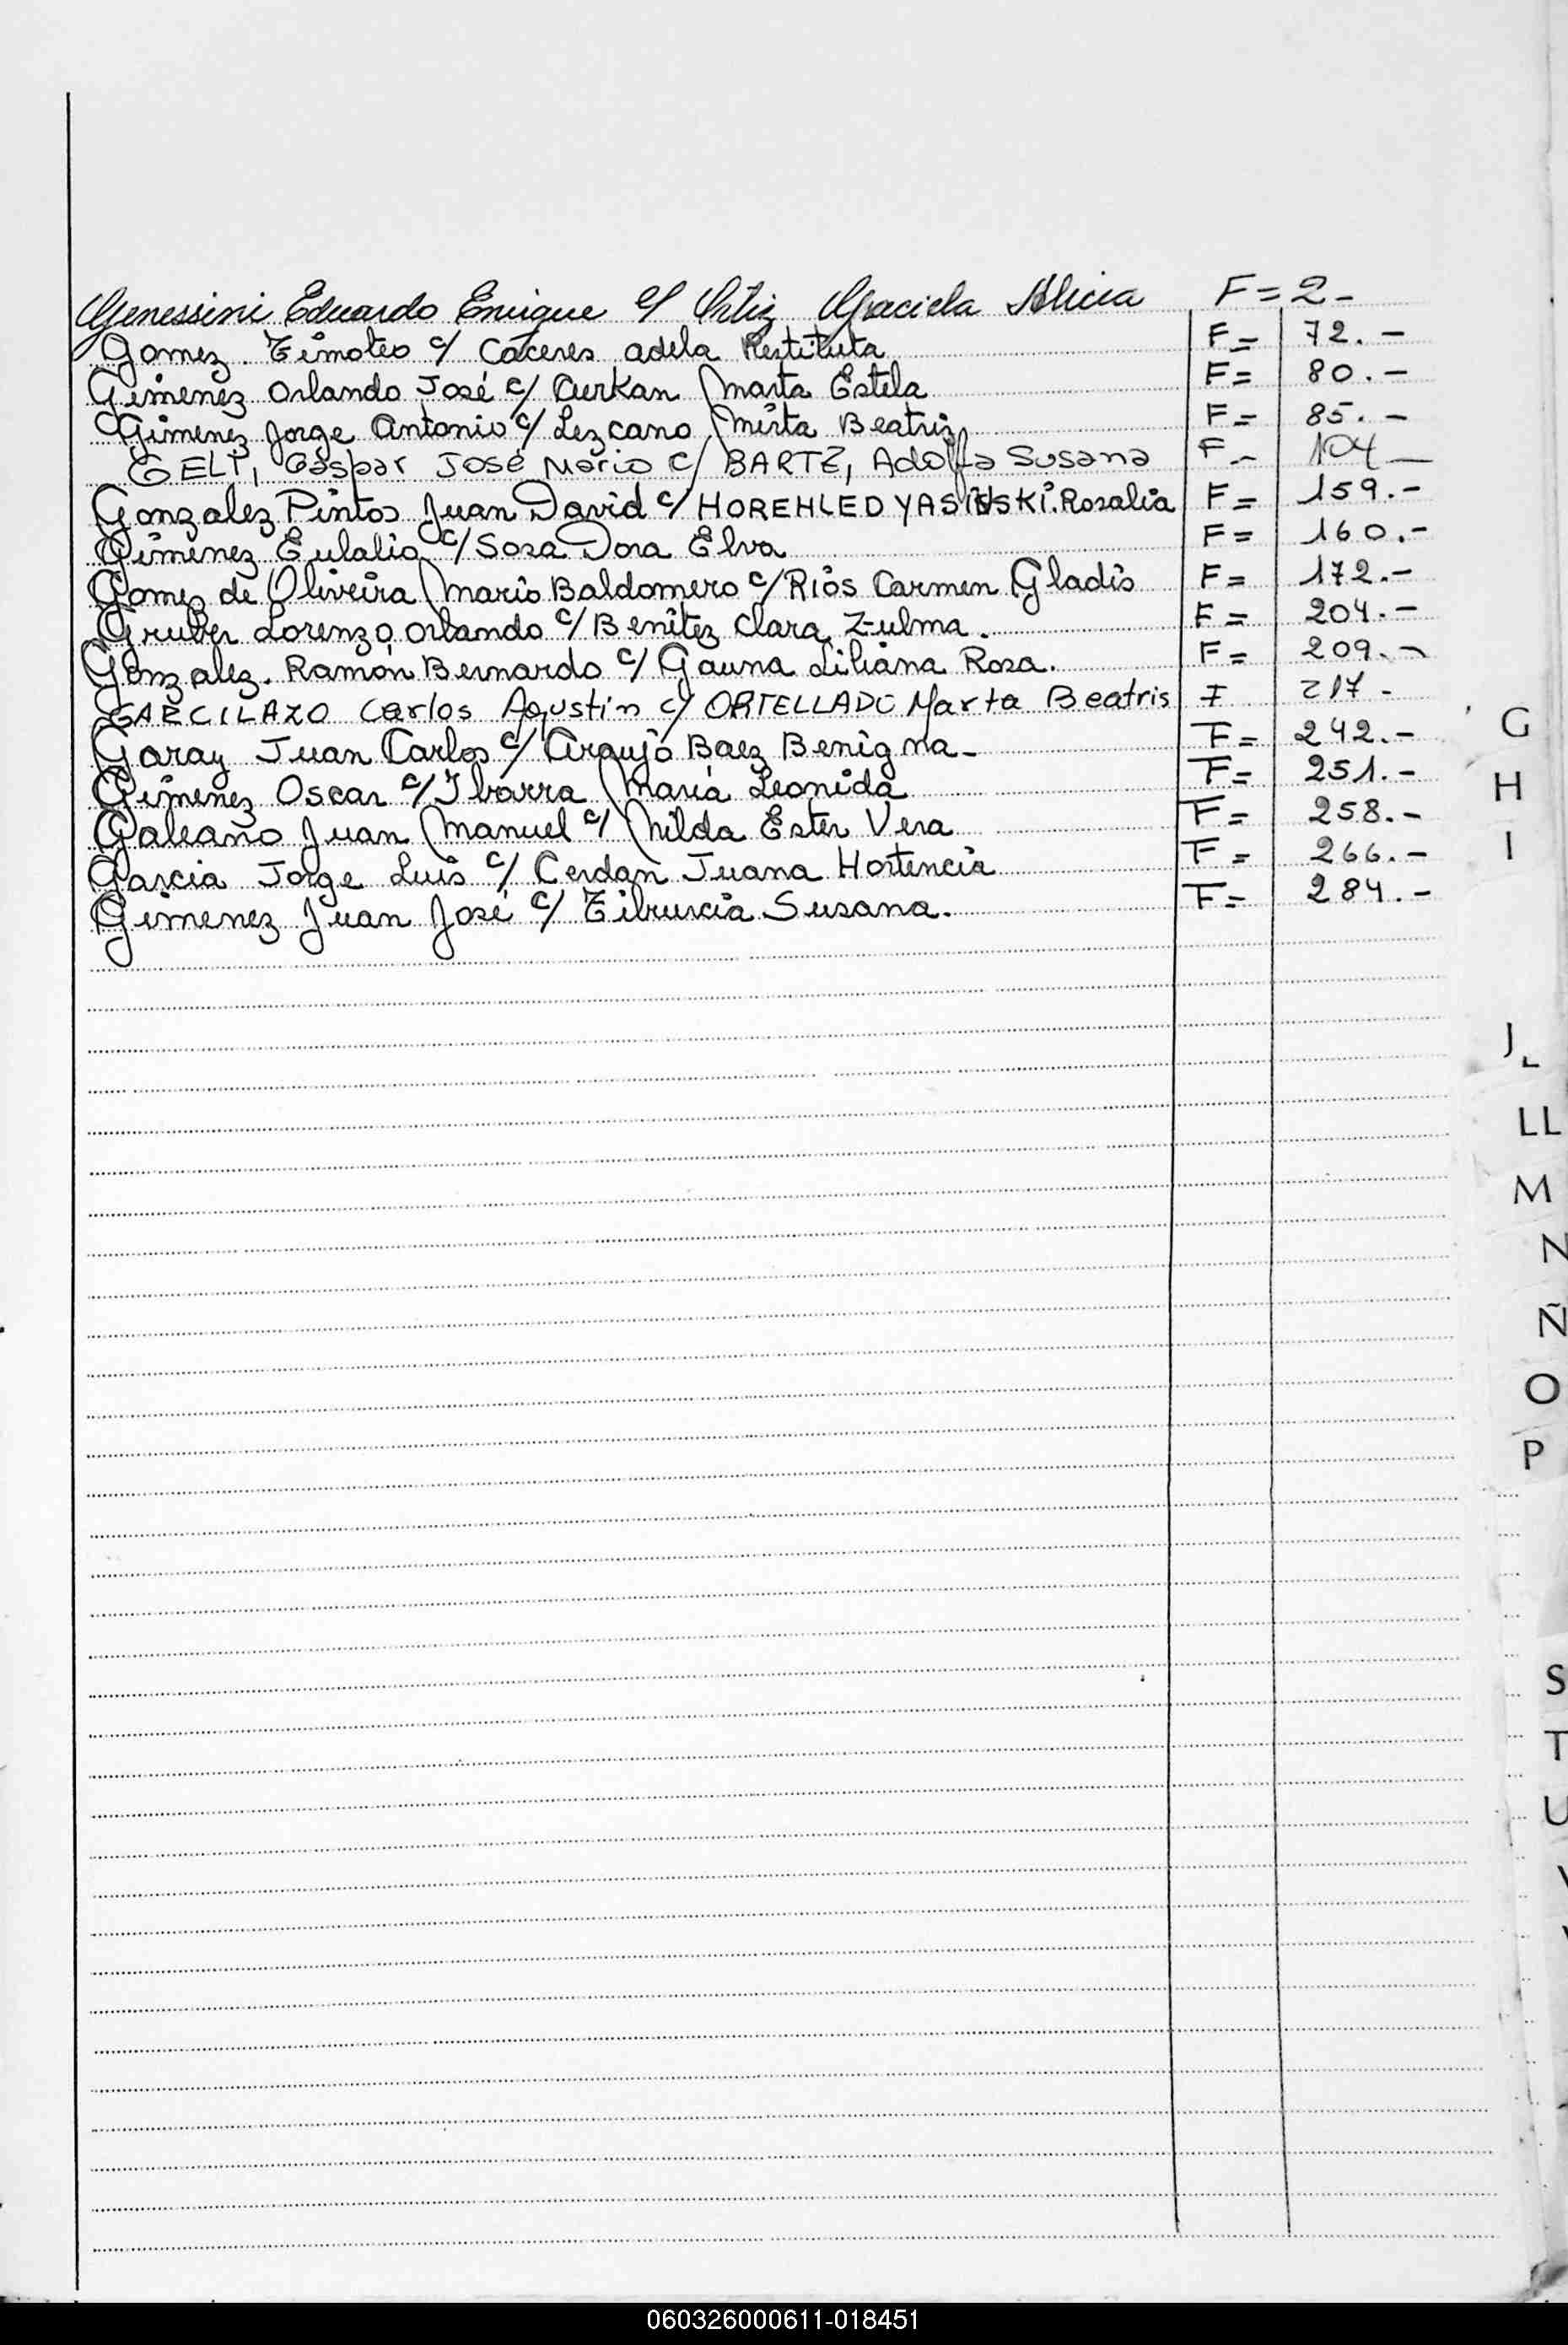 Genessini Eduardo Enrique c/ Ortiz Graciela Alicia F=2-
Gomez. Timoteo c/ Cáceres adela Restituta F= 72.-
Gimenez Orlando José c/ Aurkan Marta Estela F= 80.-
Gimenez Jorge Antonio c/ Lezcano Mirta Beatriz F= 85.-
GELI, Gaspar José Mario c/ BARTE, Adolfa Susana F- 104-
Gonzalez Pintos Juan David c/ HOREHLED Rosalia F= 159.-
Gimenez Eulalio c/ Sosa Dora Elva F= 160.-
Gomes de Oliveira Mario Baldomero c/ Rios Carmen Gladis F= 172.-
Gruber Lorenzo Orlando c/ Benitez Clara Zulma. F= 204.-
Gonzalez. Ramón Bernardo c/ Gauna Liliana Rosa. F= 209.-
GARCILAZO Carlos Agustin c/ ORTELLADO Marta Beatris F 217-
Garay Juan Carlos c/ Araujo Báez Benigna- F= 242.-
Gimenez Oscar c/ Ibarra María Leonida F= 251.-
Galeano Juan Manuel c/ Nilda Ester Vera F= 258.-
Garcia Jorge Luis c/ Cerdan Juana Hortencia F= 266.-
Gimenez Juan José c/ Tiburcia Susana. F= 284.-
G
H
I
J
L
LL
M
N
Ñ
O
P
S
T
U
060326000611-018451